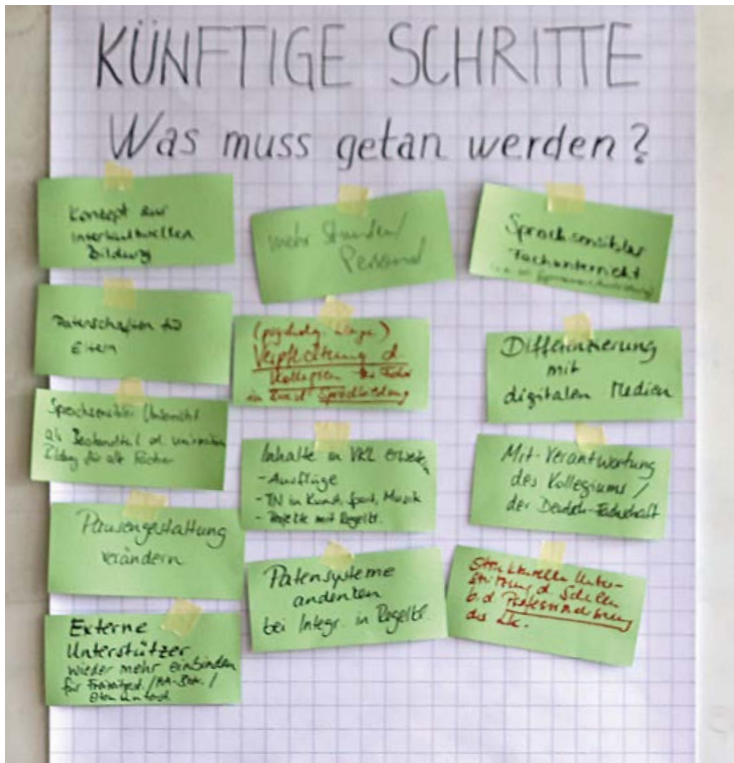 KÜNFTIGE SCHRITTE
Was muss getan werden?
Konzept zur
interkulturellen
Bildung
Patenschaften für
Eltern
Sprachsensibler Unterricht
als Bestandteil d.
Bildung für alle Fächer
Pausengestaltung
verändern
Externe
Unterstützer
wieder mehr einbinden
für
mehr Stunden/
Personal
Verpflichtung d.
Kollegen
Sprachbildung
Inhalte in VKL
- Ausflüge
- TN in Kunst, Sport, Musik
- Projekte mit Regelkl.
Patensysteme
andenken
bei Integr. in Regelkl.
Sprachsensibler
Fachunterricht
Differenzierung
mit
digitalen Medien
Mit-Verantwortung
des Kollegiums /
der Deutsch-Fachschaft
Strukturelle Unter-
stützung d. Schulen
b. d. Professionalisierung